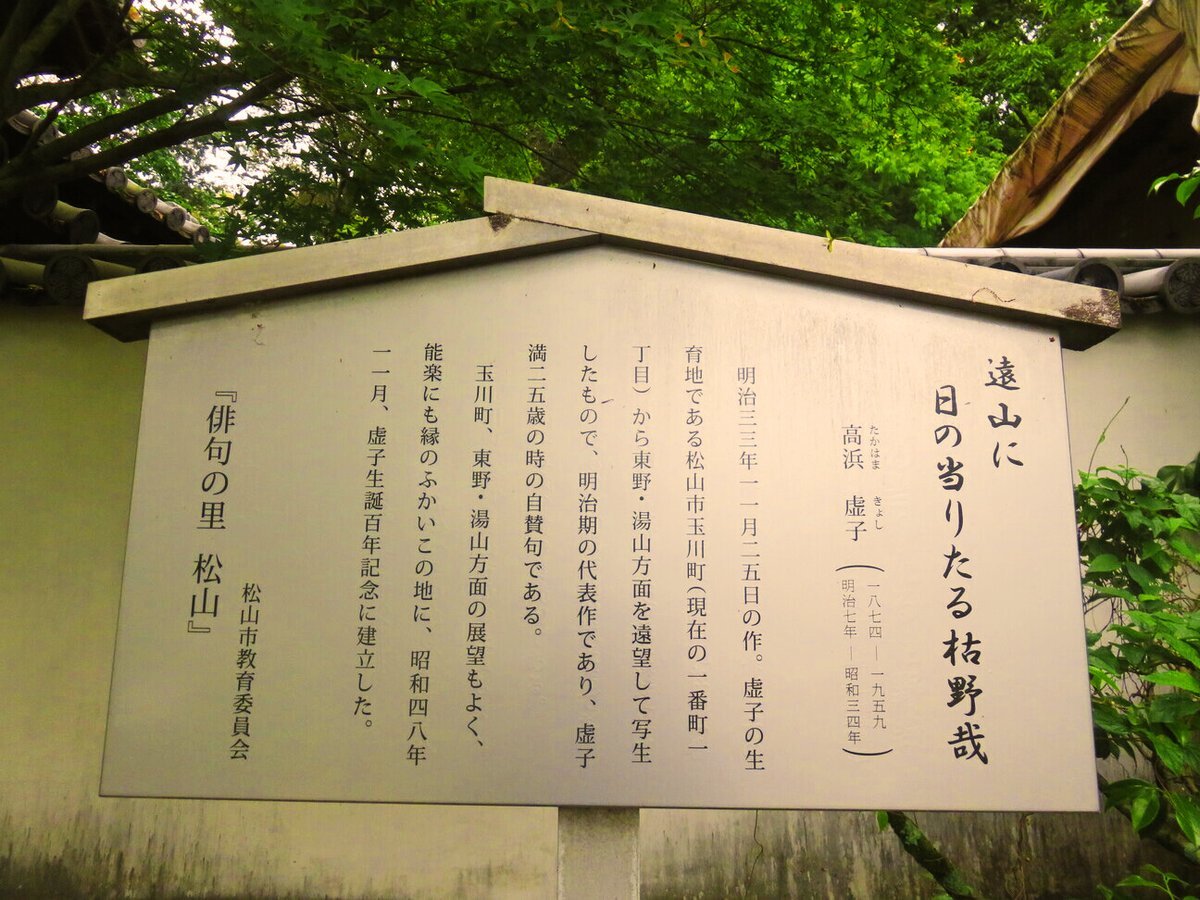 遠山に
日の当りたる枯野哉
たかはま きょし
高浜 虚子
(一八七四―一九五九
明治七年―昭和三四年)
明治三三年一一月二五日の作。虚子の生
育地である松山市玉川町(現在の一番町一
丁目)から東野・湯山方面を遠望して写生
したもので、明治期の代表作であり、虚子
満二五歳の時の自賛句である。
玉川町、東野・湯山方面の展望もよく、
能楽にも縁のふかいこの地に、昭和四八年
一一月、虚子生誕百年記念に建立した。
松山市教育委員会
『俳句の里 松山』